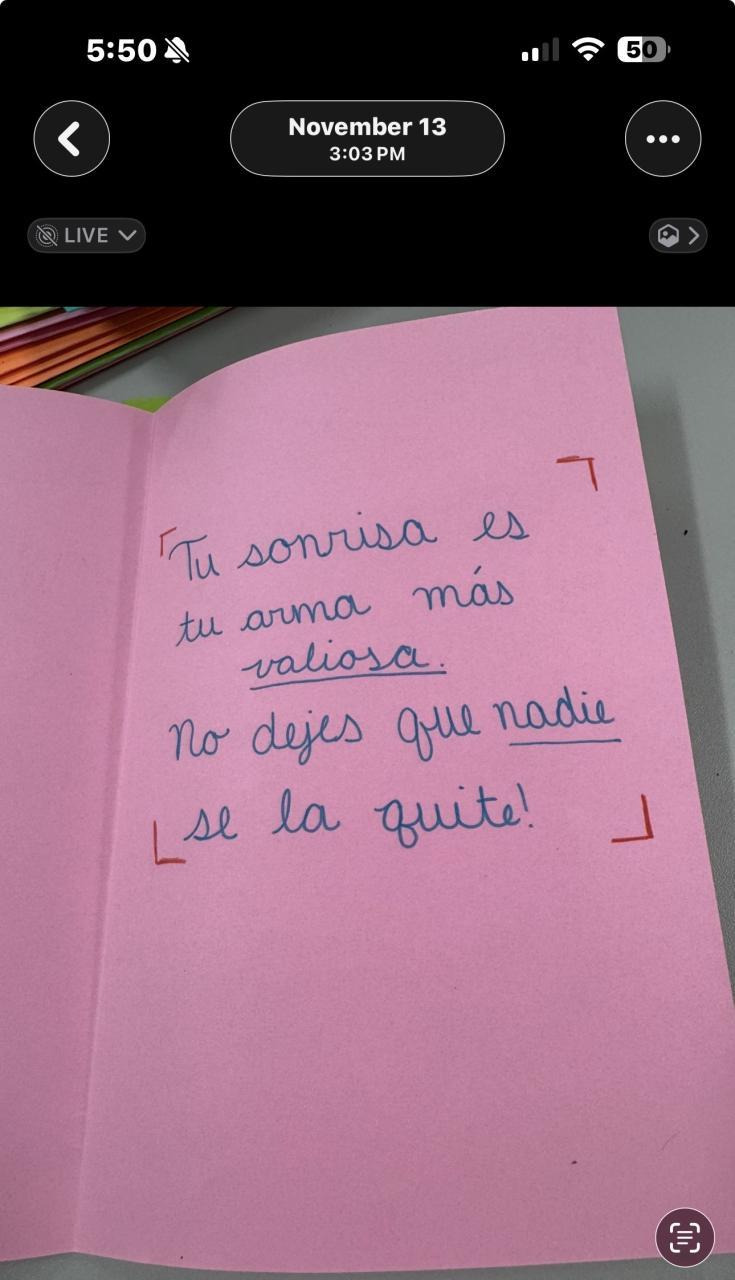 5:50
50
November 13
3:03 PM
LIVE
Tu sonrisa es
tu arma más
valiosa.
No dejes que nadie
se la quite!